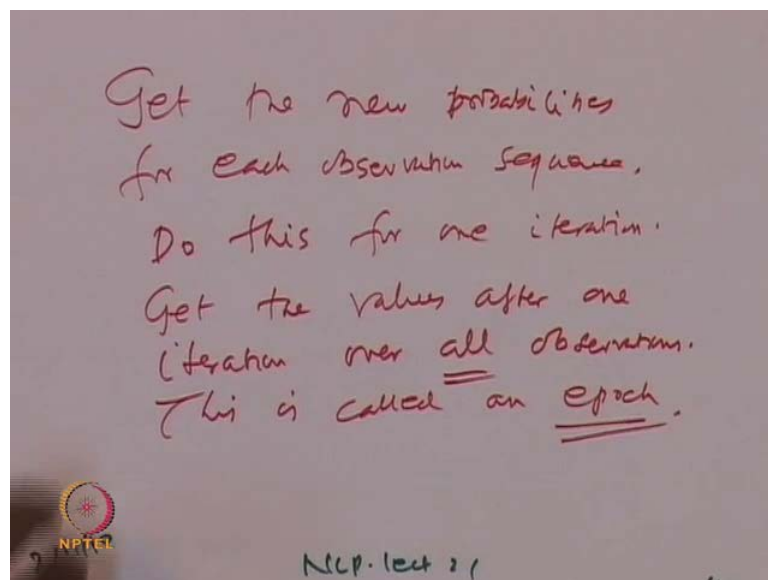 Get the new probabilities
for each observation sequence.
Do this for one iteration.
Get the values after one
iteration over all observations.
This is called an epoch.
NPTEL
NLP. lect